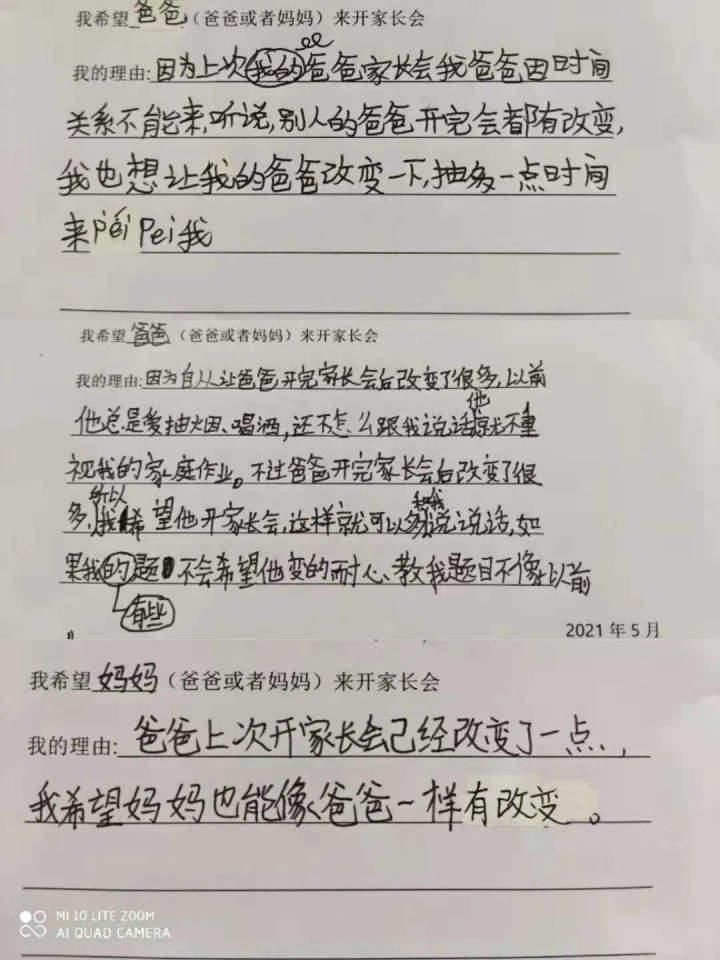 我希望爸爸(爸爸或者妈妈)来开家长会
我的理由:因为上次我的爸爸家长会我爸爸因时间
关系不能来,听说,别人的爸爸开完会都有改变,
我也想让我的爸爸改变一下,抽多一点时间
来péi Pei我
我希望爸爸(爸爸或者妈妈)来开家长会
我的理由:因为自从让爸爸开完家长会后改变了很多,以前
他总是爱抽烟、喝酒,还不怎么跟我说话他就不重
视我的家庭作业。不过爸爸开完家长会后改变了很
多,所以我希望他开家长会,这样就可以多和我说说话,如
果我的题不会希望他变的耐心、教我题目不像以前
有些
。
2021年5月
我希望妈妈(爸爸或者妈妈)来开家长会
我的理由:爸爸上次开家长会己经改变了一点,
我希望妈妈也能像爸爸一样有改变。
MI 10 LITE ZOOM
AI QUAD CAMERA